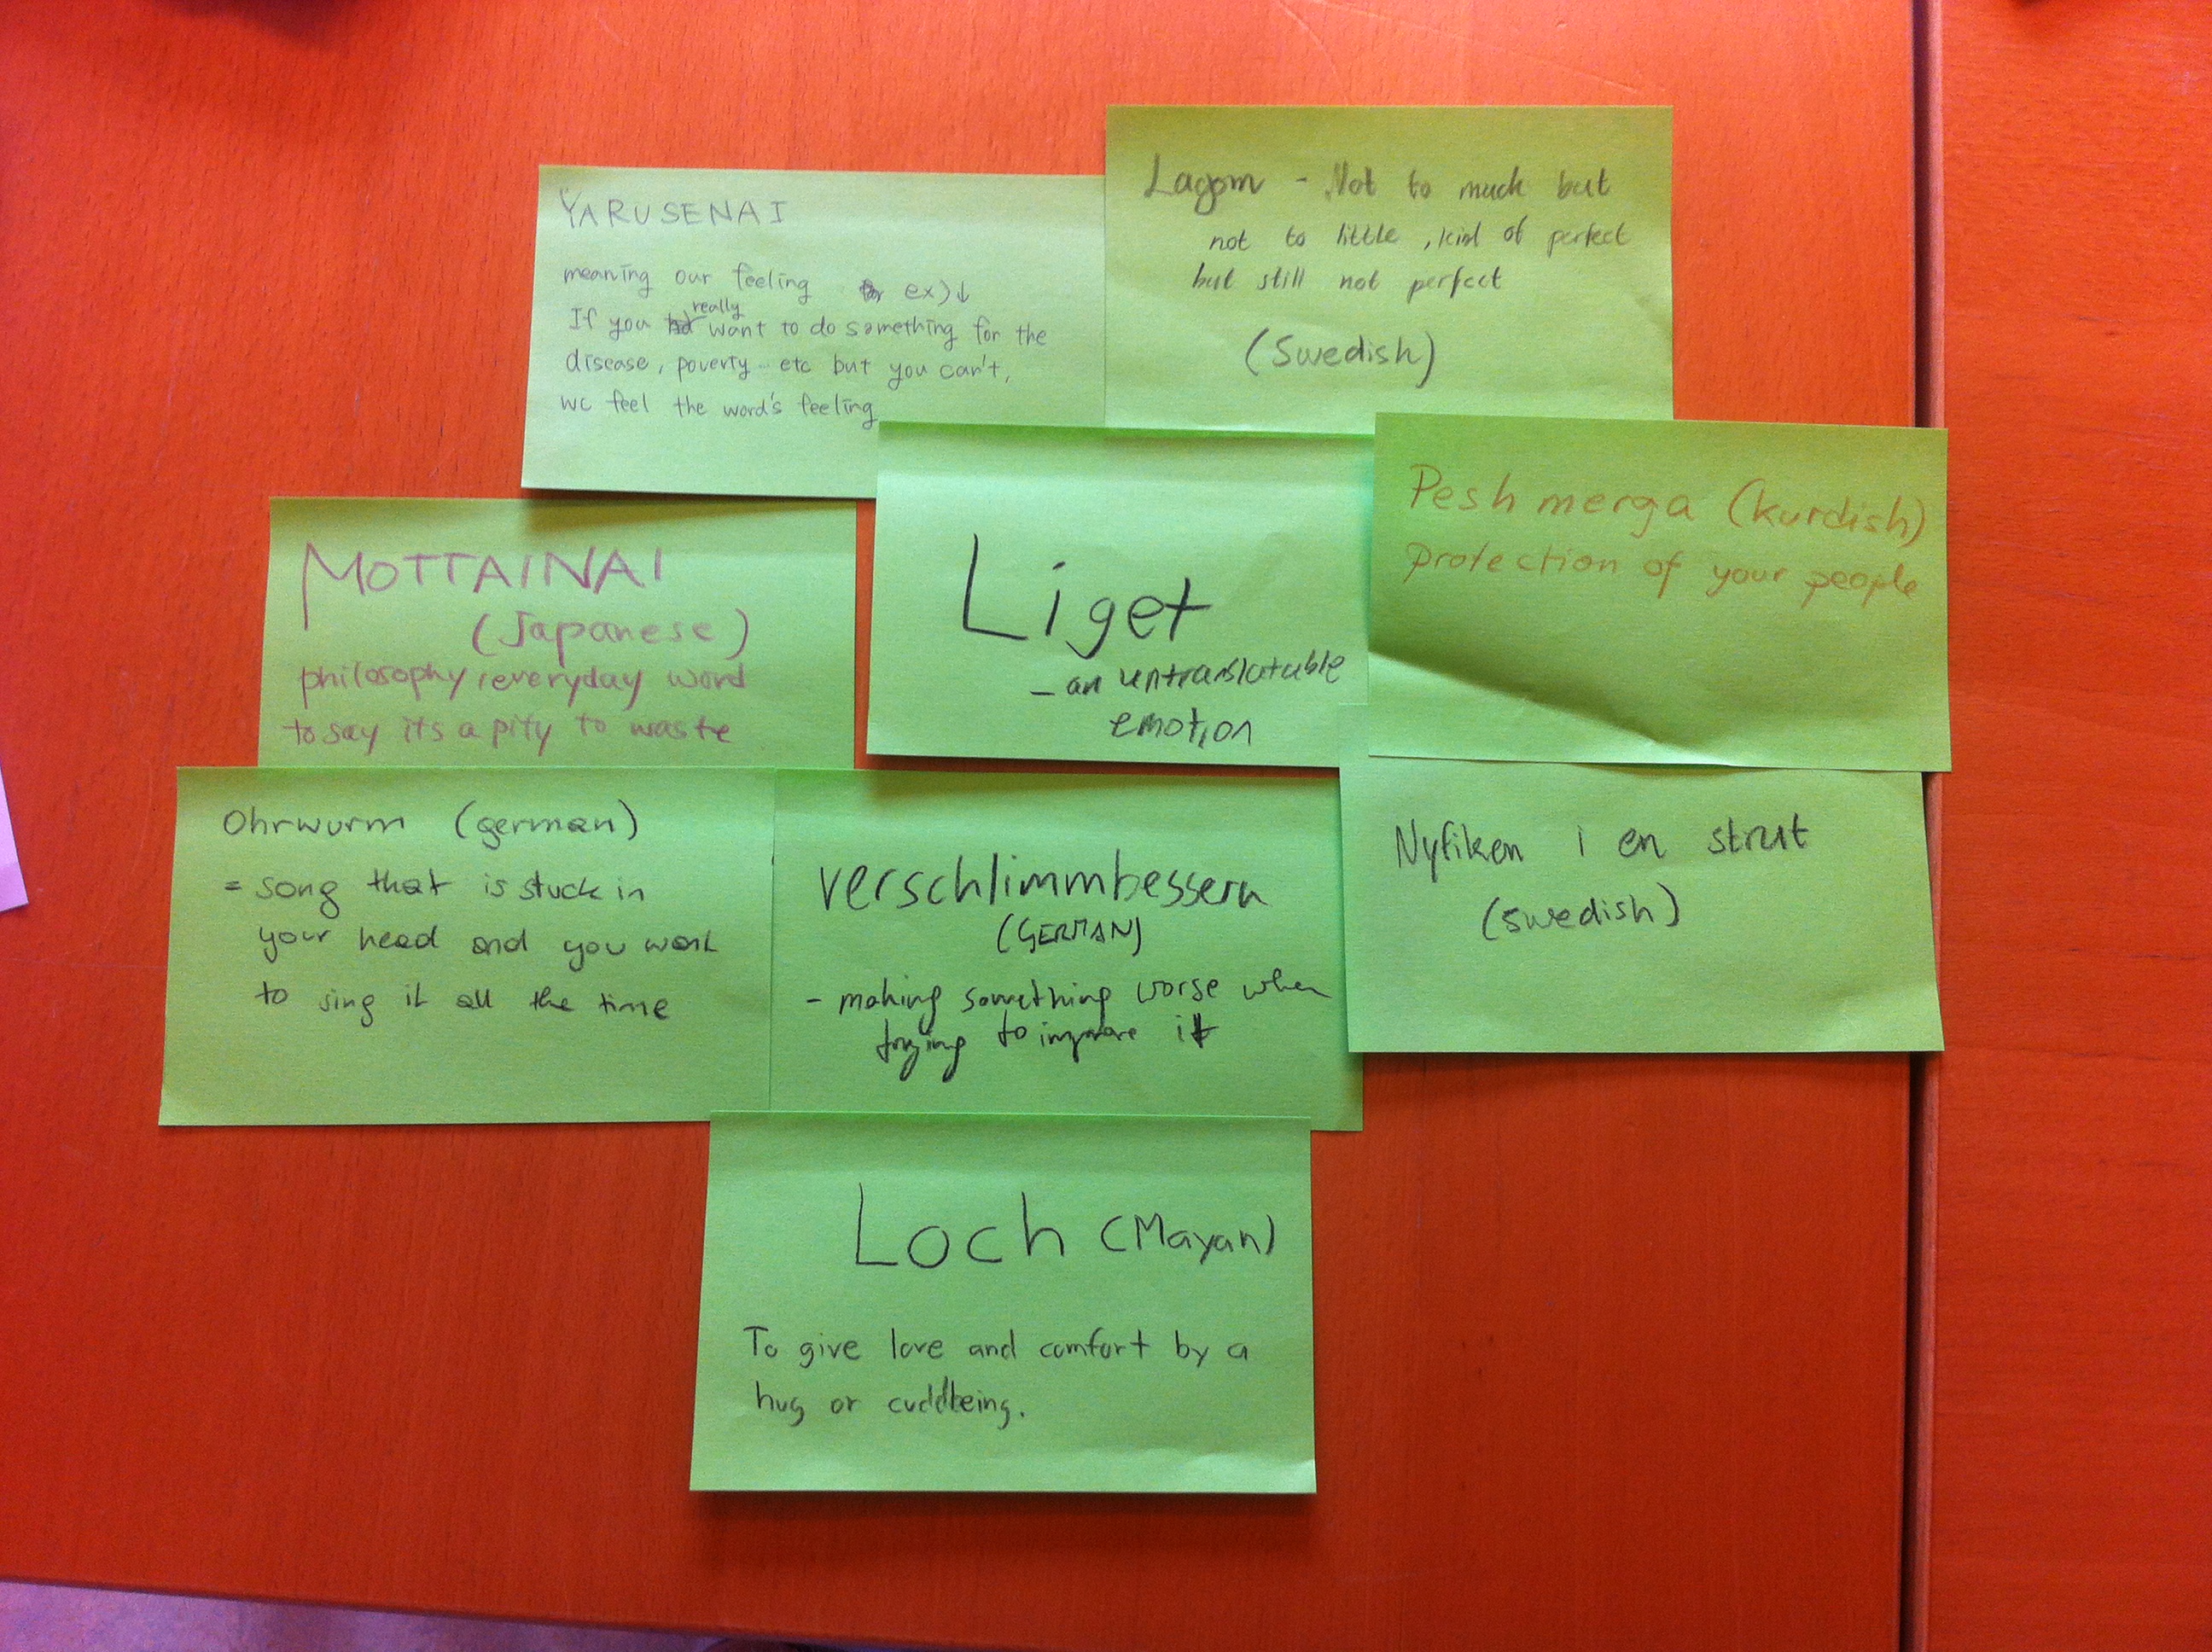 YARUSENAI
meaning our feeling ex)↓
If you really want to do something for the
disease, poverty... etc but you can't,
we feel the word's feeling
Lagom - Not to much but
not to little, kind of perfect
but still not perfect
(Swedish)
MOTTAINAI
(Japanese)
philosophy, everyday word
to say its a pity to waste
Liget
- an untranslatable
emotion
Pesh merga (kurdish)
protection of your people
Ohrwurm (german)
= song that is stuck in
your head and you want
to sing it all the time
verschlimmbessern
(GERMAN)
- making something worse when
trying to improve it
Nyfiken i en strut
(swedish)
Loch (Mayan)
To give love and comfort by a
hug or